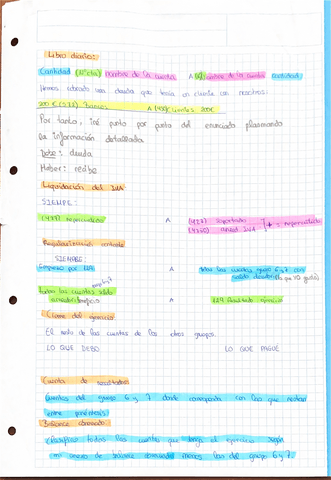 Libro diario:
Cantidad (Nº cta) nombre de la cuenta A nombre de la cuenta cantidad
Hemos cobrado una deuda que tenía un cliente con nosotros:
200 € bancos A (430) clientes 200€
Por tanto, iré punto por punto del enunciado plasmando
la información detallada
Debe: deuda
Haber: recibe
Liquidación del IVA
SIEMPRE:
(477) repercutido A (472) soportado
(4750) IVA
Regularización contable
SIEMPRE:
Empiezo por 129 A todas las cuentas grupo 6 y 7 con
saldo deudor
todas las cuentas saldo
acreedor A 129 Resultado ejercicio
Cierre del ejercicio
El resto de las cuentas de los otros grupos.
LO QUE DEBO LO QUE PAGUÉ
Cuenta de resultados
Cuentas del grupo 6 y 7 donde corresponda con las que restan
entre paréntesis
Balance abreviado
Clasificar todas las cuentas que tenga el ejercicio según
mi anexo de balance abreviado menos las del grupo 6 y 7.